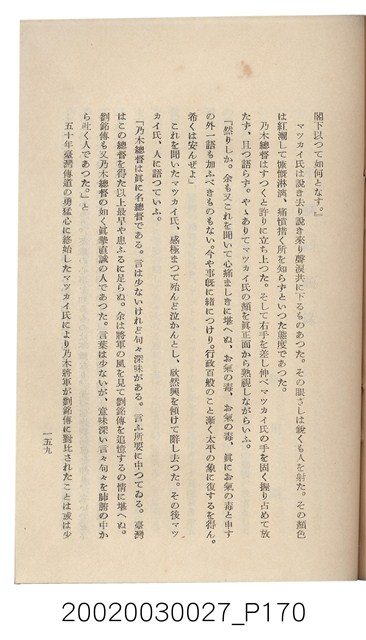 閣下以つて如何となす。』
マツカイ氏は說き去り說き來り聲淚共に下るものあつた。その眼ざしは銳くも人を射た。その顏色
は紅潮して慷慨淋漓、痛憤措く所を知らずといつた態度であつた。
乃木總督はすつくと許りに立ち上つた。そして右手を差し伸べマツカイ氏の手を固く握り占めて放
たず、且つ語らず。やゝありてマツカイ氏の顏を眞正面から熟視しながらいふ。
「然りしか。余も又これを聞いて心痛ましきに堪へぬ、お氣の毒、お氣の毒、眞にお氣の毒と申す
の外一語も加ふべきものもない。今や事旣に緖につけり。行政百般のこと漸く太平の象に復するを得ん。
希くは安んぜよ」
これを聞いたマツカイ氏、感極まつて殆んど泣かんとし、欣然興を傾けて辭し去つた。その後マツ
カイ氏、人に語つていふ。
「乃木總督は眞に名總督である。言は少ないけれど句々深味がある。言ふ所要に中つてゐる。臺灣
はこの總督を得た以上最早や患ふるに足らぬ。余は將軍の風を見て劉銘傳を追憶するの情に堪へぬ。
劉銘傳も又乃木總督の如く眞摯直誠の人であつた。言葉は少ないが、意味深い言々句々を肺腑の中か
ら吐く人であつた。」と
五十年臺灣傳道の勇猛心に終始したマツカイ氏により乃木將軍が劉銘傳に對比されたことは或は少
一五九
20020030027_P170